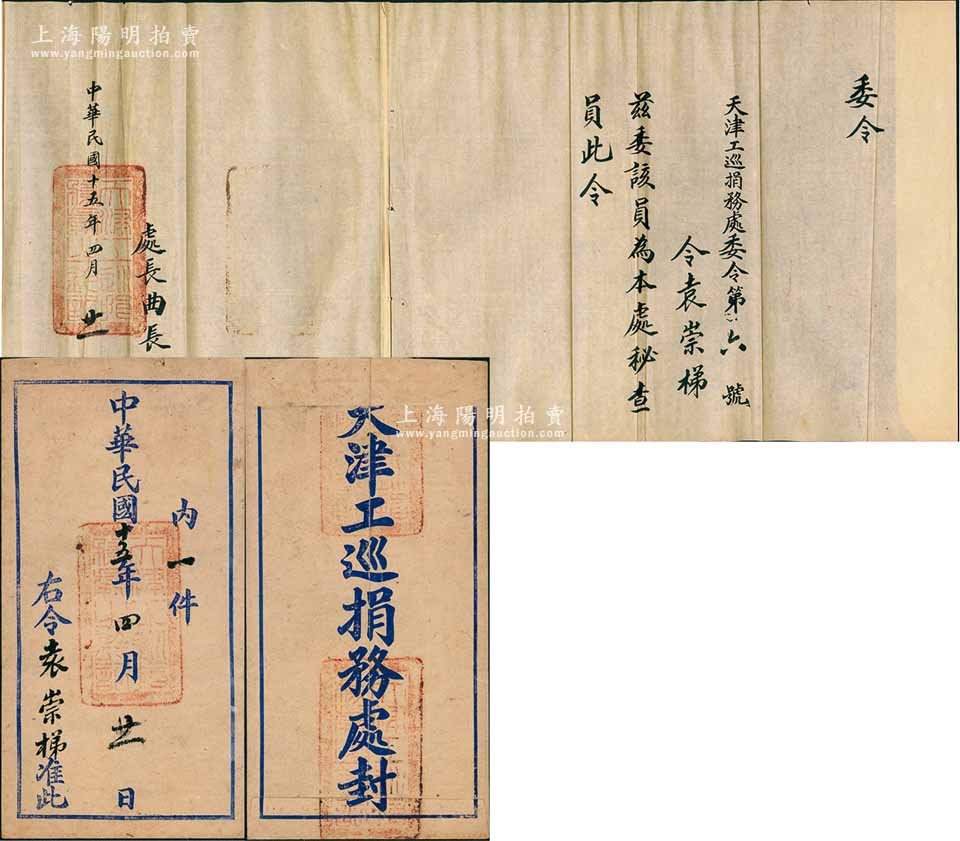 上海陽明拍賣
www.yangmingauction.com
上海陽明拍賣
www.yangmingauction.com
委令
天津工巡捐務處委令第六號
令袁崇梯
茲委該員為本處秘查
員此令
處長曲長
中華民國十五年四月廿一
上海陽明拍賣
www.yangmingauction.com
天津工巡捐務處封
內一件
中華民國十五年四月廿一日
右令袁崇梯准此